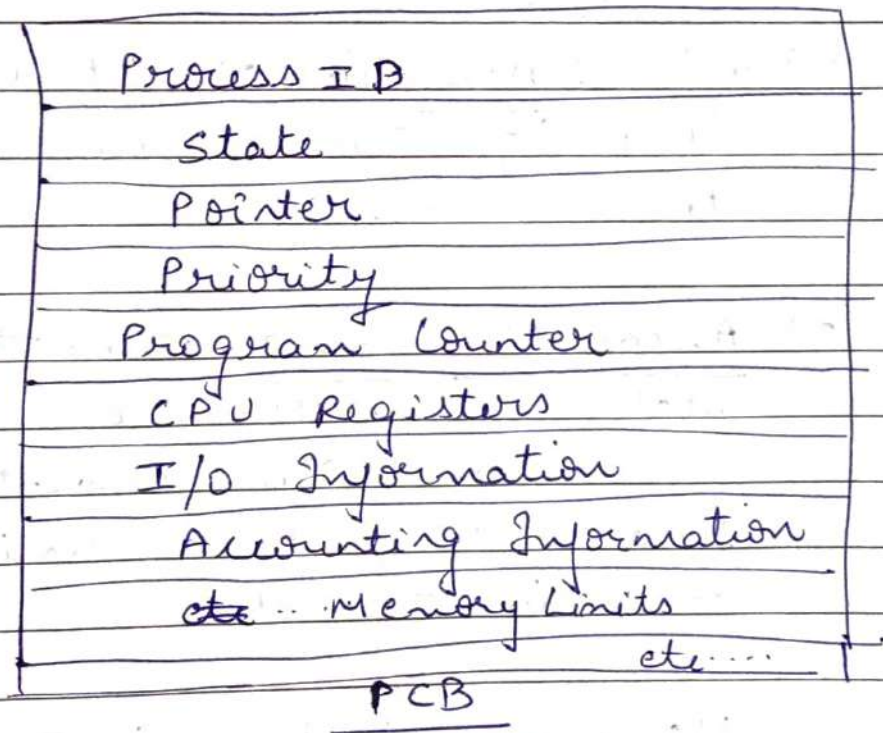 Process ID
State
Pointer
Priority
Program Counter
CPU Registers
I/O Information
Accounting Information
etc .. Memory Limits
etc.....
PCB